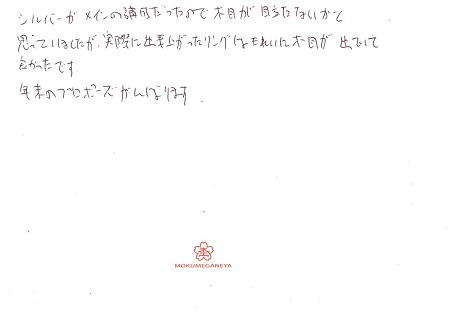 シルバーがメインの構成だったので木目が目立たないかと
思っていましたが、実際に出来上がったリングはきれいに木目が出ていて
良かったです
年末のプロポーズがんばります.
MOKUMEGANEYA